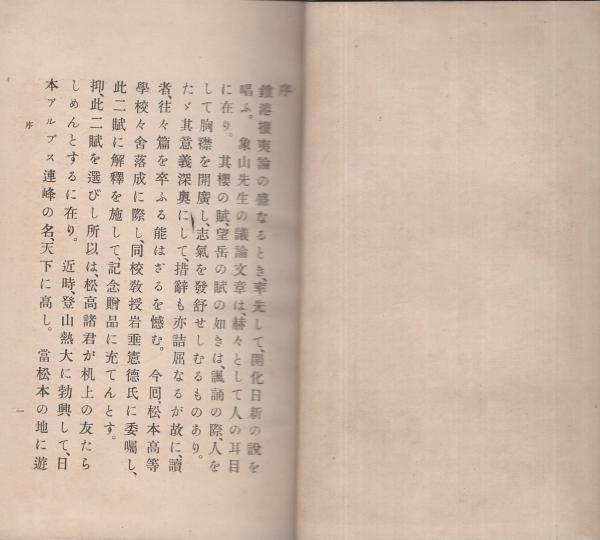 序
鎖港攘夷論の盛なるとき、率先して、開化日新の說を
唱ふ。象山先生の議論文章は、赫々として人の耳目
に在り。其櫻の賦、望岳の賦の如きは、諷誦の際、人を
して胸襟を開廣し、志氣を發舒せしむるものあり。
たゞ其意義深奥にして、措辭も亦詰屈なるが故に、讀
者、往々篇を卒ふる能はざるを憾む。今囘、松本高等
學校々舍落成に際し、同校敎授岩垂憲德氏に委囑し、
此二賦に解釋を施して、記念贈品に充てんとす。
抑、此二賦を選びし所以は、松高諸君が机上の友たら
しめんとするに在り。近時、登山熱大に勃興して、日
本アルプス連峰の名、天下に高し。當松本の地に遊
序
一